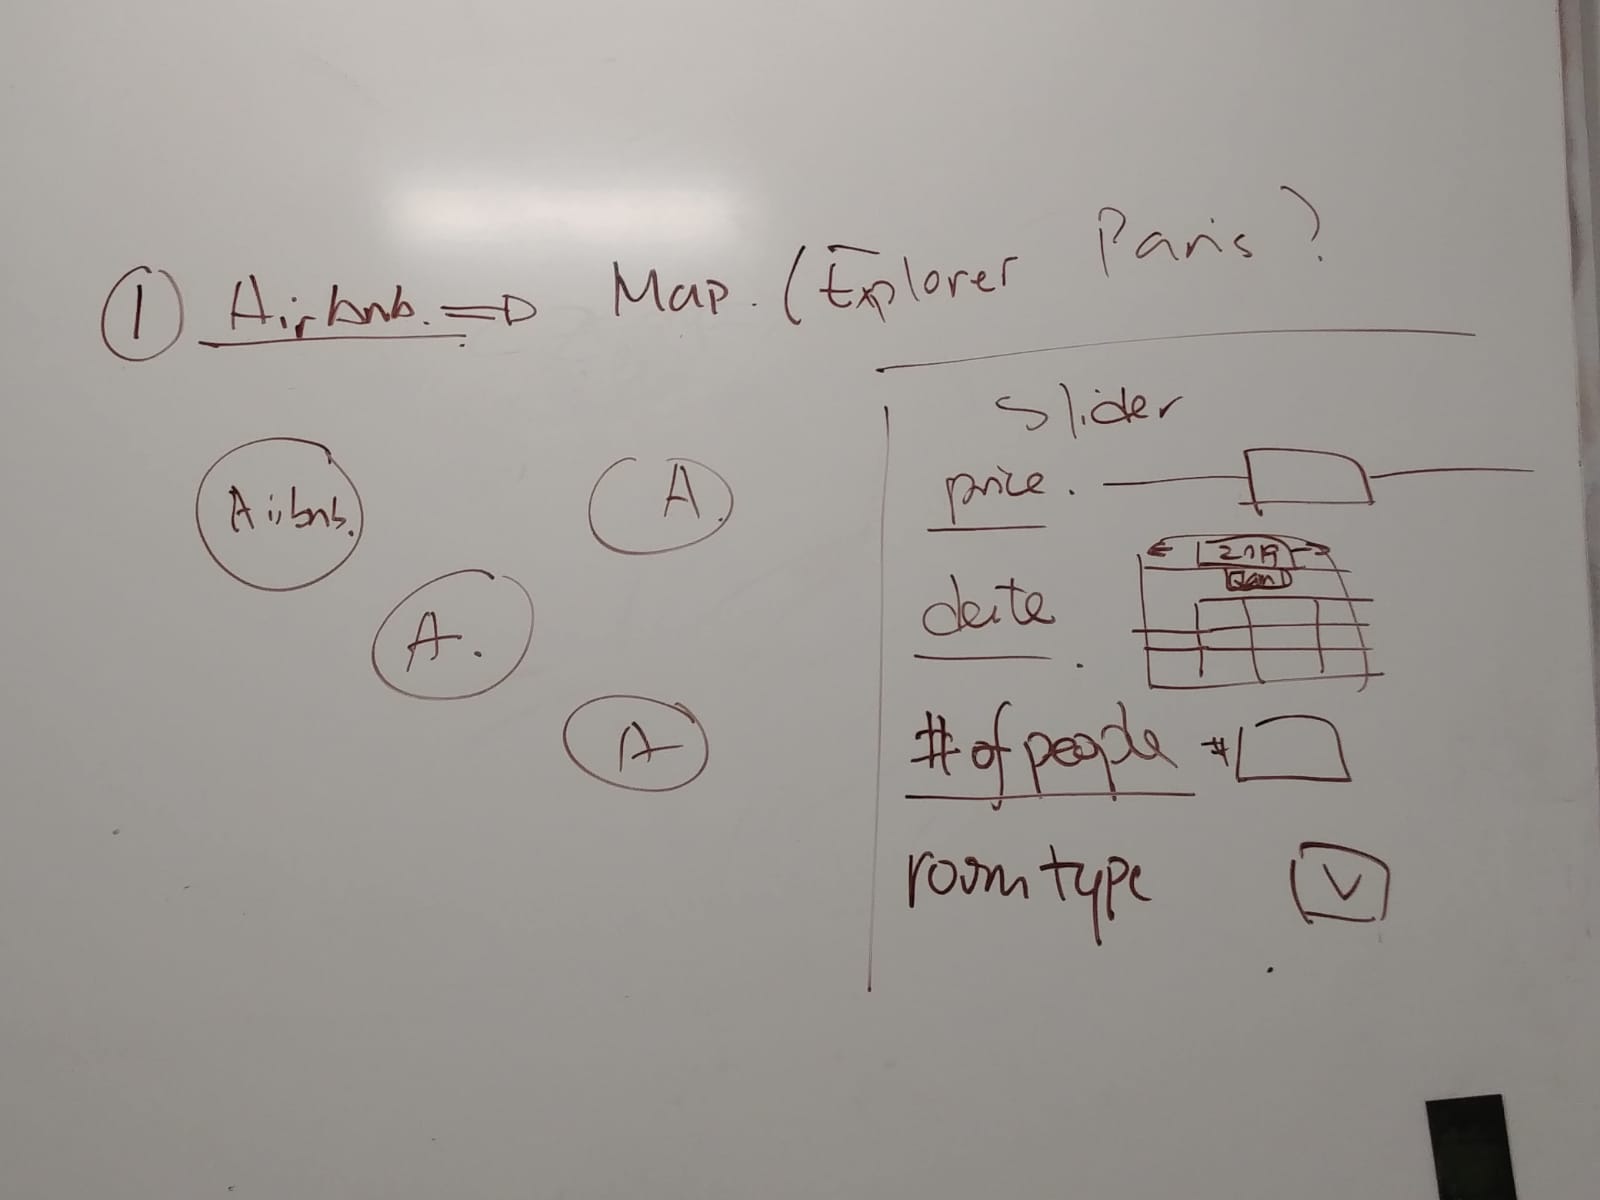 ① Airbnb. ⇒ Map. (Explorer Paris)
Airbnb.
A.
A.
A
Slider
price.
date.
2019
Jan
# of people #
room type V